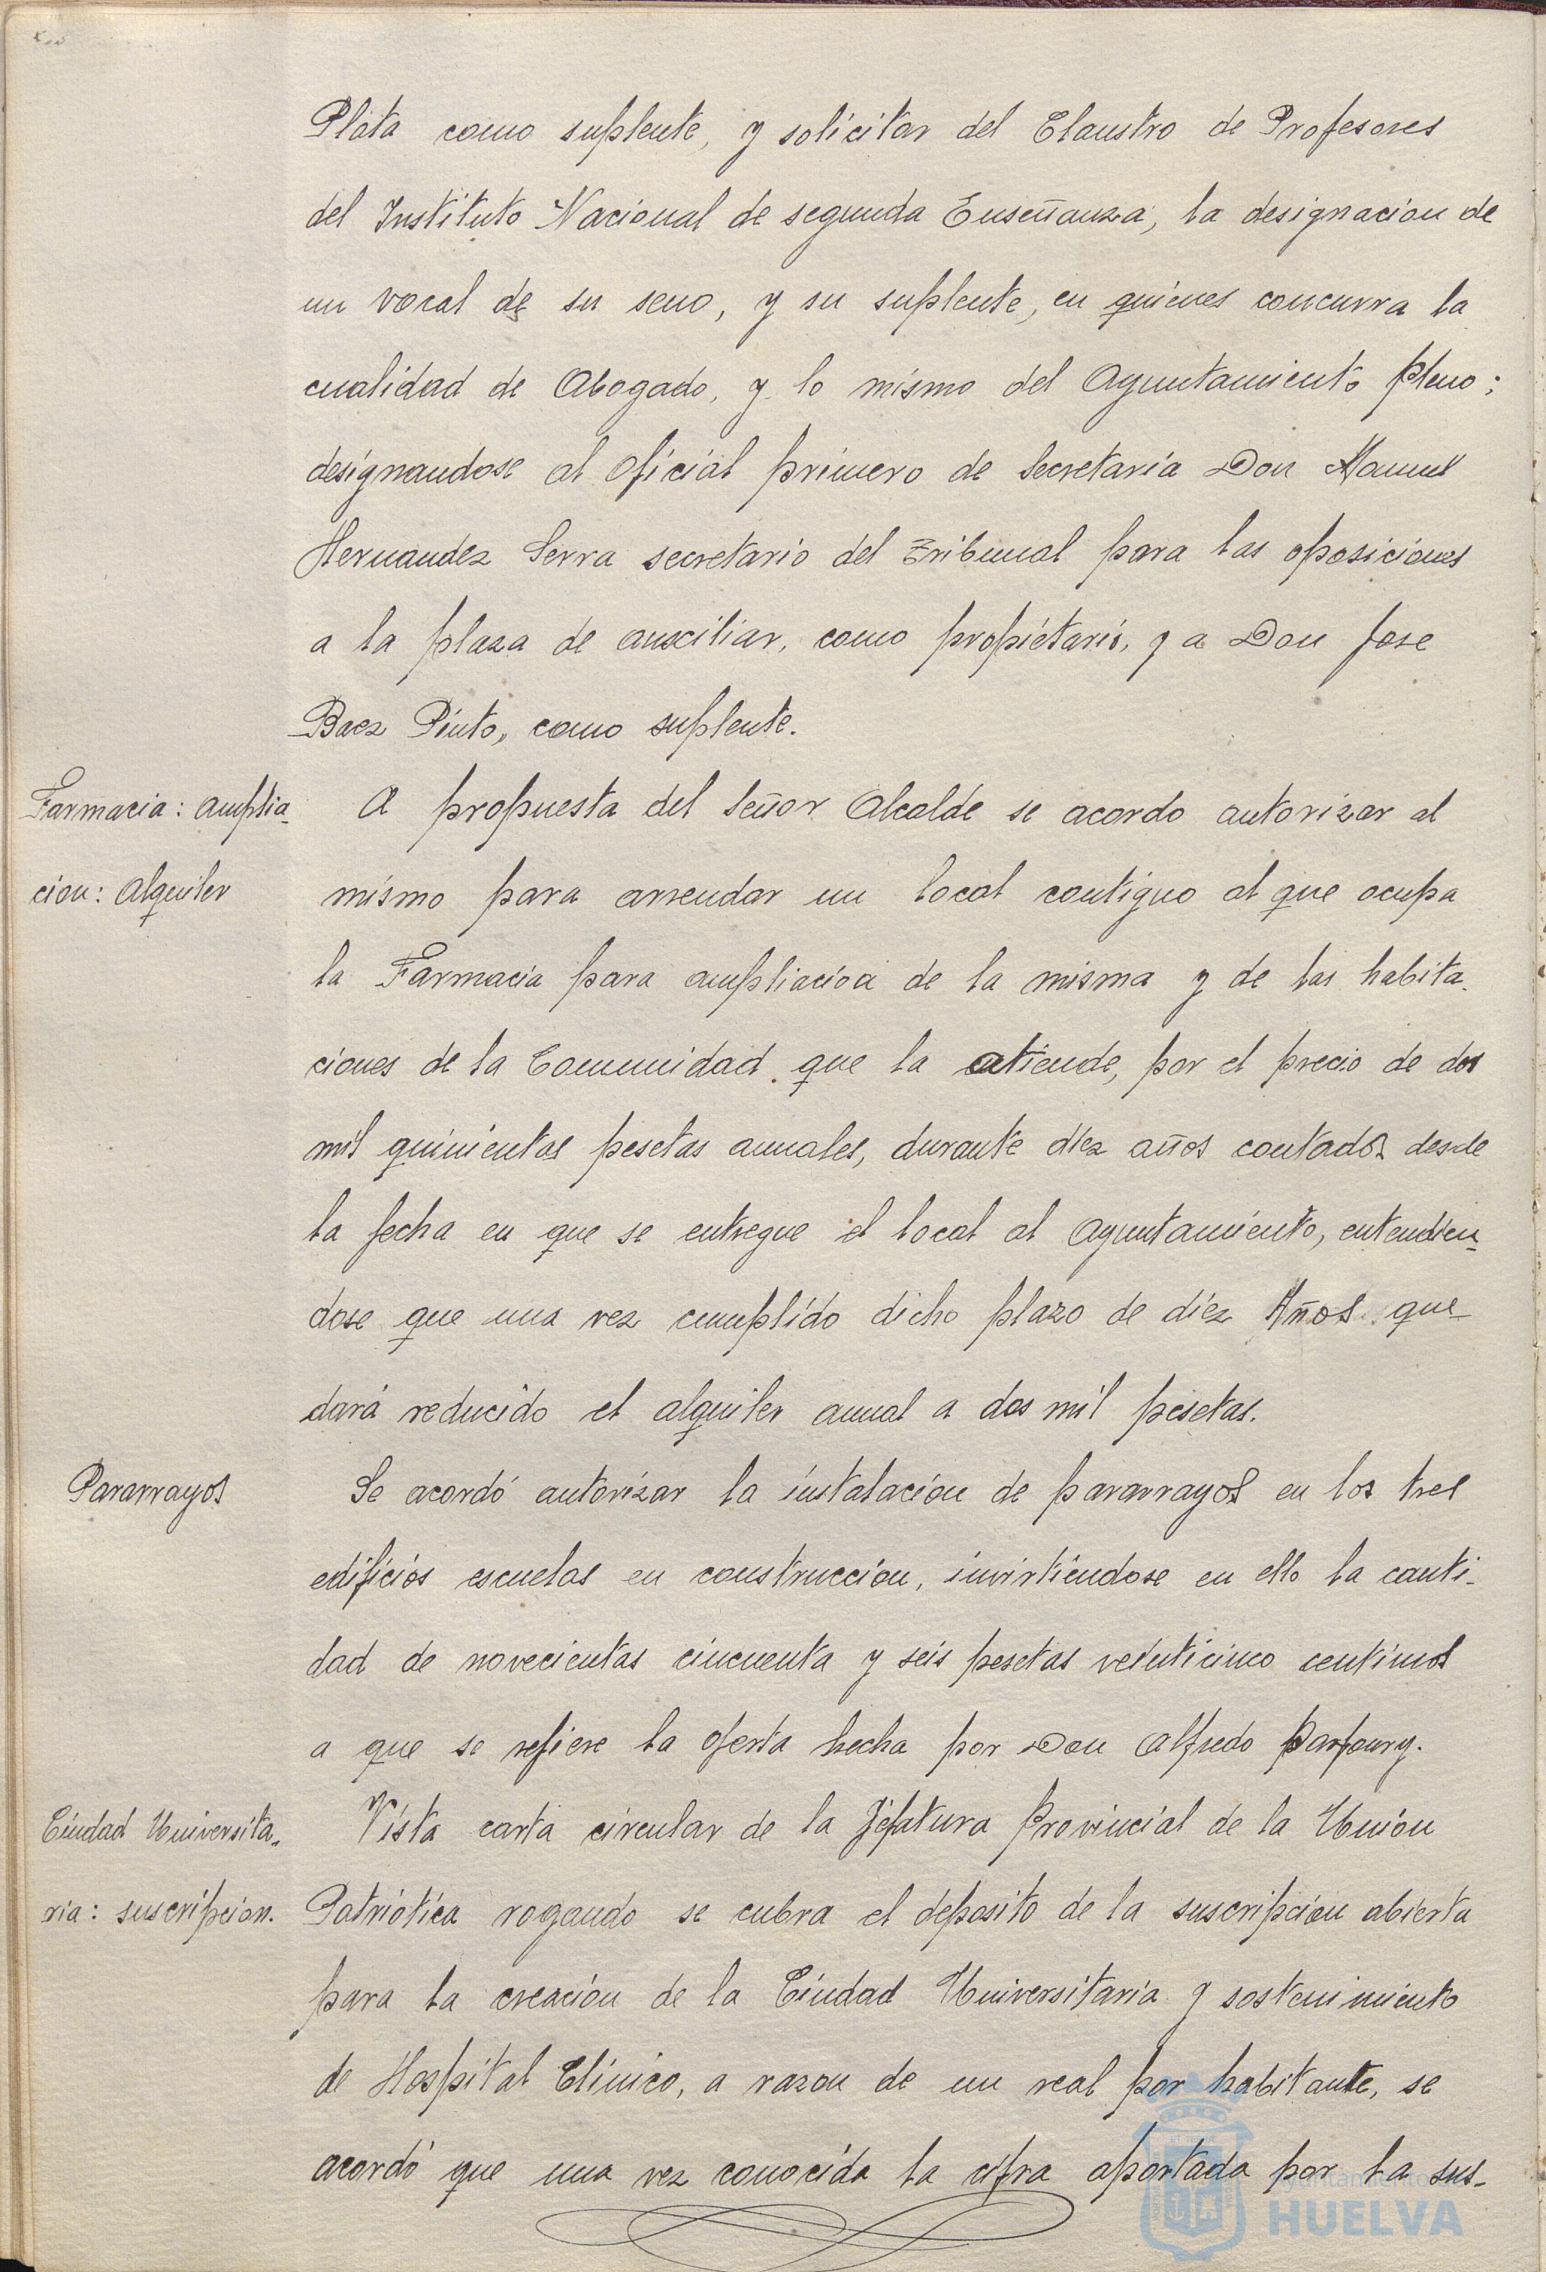 Plata como suplente, y solicitar del Claustro de Profesores
del Instituto Nacional de segunda Enseñanza, la designacion de
un vocal de su seno, y su suplente, en quienes concurra la
cualidad de Abogado, y lo mismo del Ayuntamiento pleno;
designandose al oficial primero de Secretaria Don Manuel
Hernandez Serra secretario del Tribunal para las oposiciones
a la plaza de auxciliar, como propietario, y a Don Jose
Baez Pinto, como suplente.
Farmacia: amplia-
cion: alquiler
A propuesta del Señor Alcalde se acordo autorizar al
mismo para arrendar un local contiguo al que ocupa
la Farmacia para ampliacion de la misma y de las habita-
ciones de la Comunidad que la atiende, por el precio de dos
mil quinientas pesetas anuales, durante diez años contados desde
la fecha en que se entregue el local al Ayuntamiento, entendien-
dose que una vez cumplido dicho plazo de diez Años que-
dará reducido el alquiler anual a dos mil pesetas.
Pararrayos
Se acordó autorizar la instalación de pararrayos en los tres
edificios escuelas en construcción, invirtiéndose en ello la canti-
dad de novecientas cincuenta y seis pesetas veinticinco centimos
a que se refiere la oferta hecha por Don Alfredo
Ciudad Universita-
ria: suscripcion.
Vista carta circular de la Jefatura Provincial de la Unión
Patriótica rogando se cubra el deposito de la suscripción abierta
para la creación de la Ciudad Universitaria y sostenimiento
de Hospital Clínico, a razon de un real por habitante, se
acordó que una vez conocida la cifra aportada por la sus-
Ayuntamiento de
HUELVA